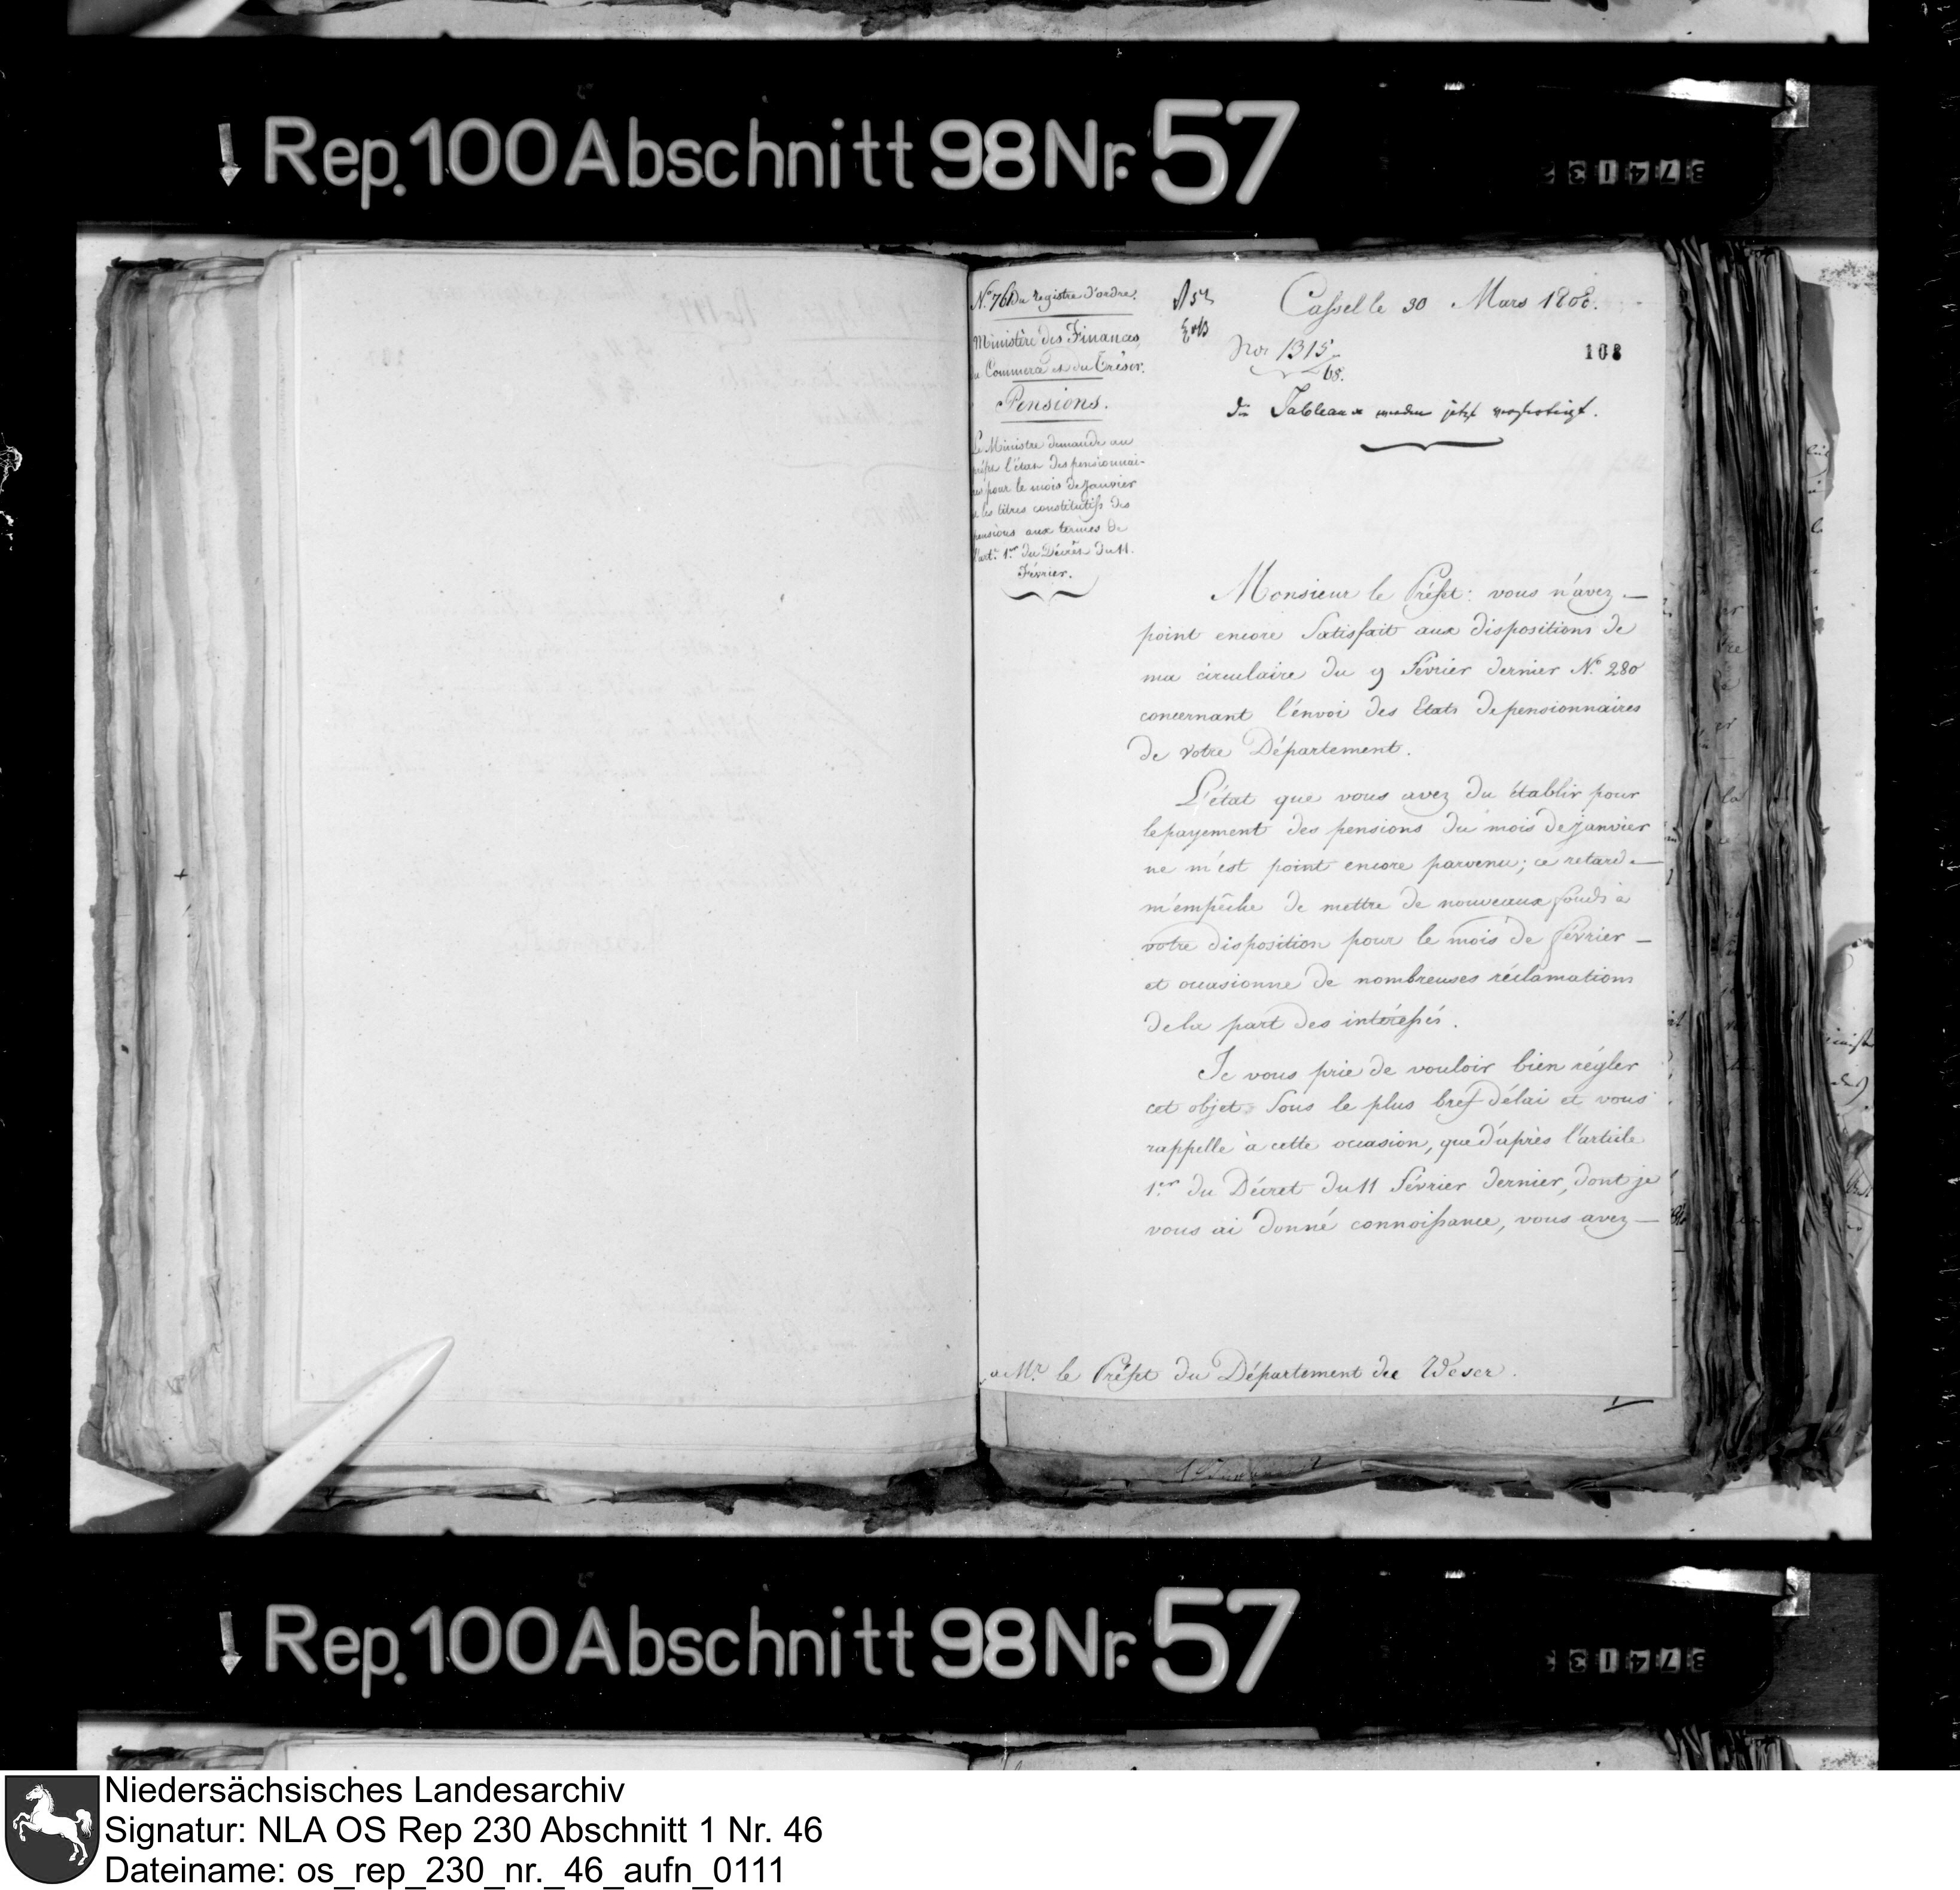 Rep. 100 Abschnitt 98 Nr. 57
N.º 761 du registre d'ordre.
Ministère des Finances,
du Commerce et du Trésor.
Pensions.
Le Ministre demande au
préfet l'état des pensionnai-
res pour le mois de janvier
et les titres constitutifs des
pensions aux termes de
l'art.e 1.er du Décret du 11.
Février.
Cassel le 30 Mars 1808.
108
No: 1315.
die Tableaux werden jetzt
Monsieur le Préfet: vous n'avez
point encore Satisfait aux dispositions de
ma circulaire du 9 Février dernier N.º 280
concernant l'énvoi des Etats de pensionnaires
de votre Département.
L'état que vous avez du établir pour
le payement des pensions du mois de janvier
ne m'est point encore parvenu; ce retard
m'empêche de mettre de nouveaux fonds à
votre disposition pour le mois de février
et occasionne de nombreuses réclamations
de la part des intéressés.
Je vous prie de vouloir bien régler
cet objet Sous le plus bref délai et vous
rappelle à cette occasion, que d'après l'article
1.er du Décret du 11 Février dernier, dont je
vous ai donné connoissance, vous avez
a M.r le Préfet du Département du Weser.
Rep. 100 Abschnitt 98 Nr. 57
Niedersächsisches Landesarchiv
Signatur: NLA OS Rep 230 Abschnitt 1 Nr. 46
Dateiname: os_rep_230_nr._46_aufn_0111